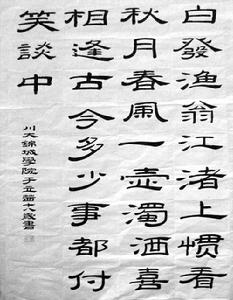 白發渔翁江渚上惯看
秋月春風一壺濁酒喜
相逢古今多少事都付
笑談中
川大錦城學院于立十八歲書